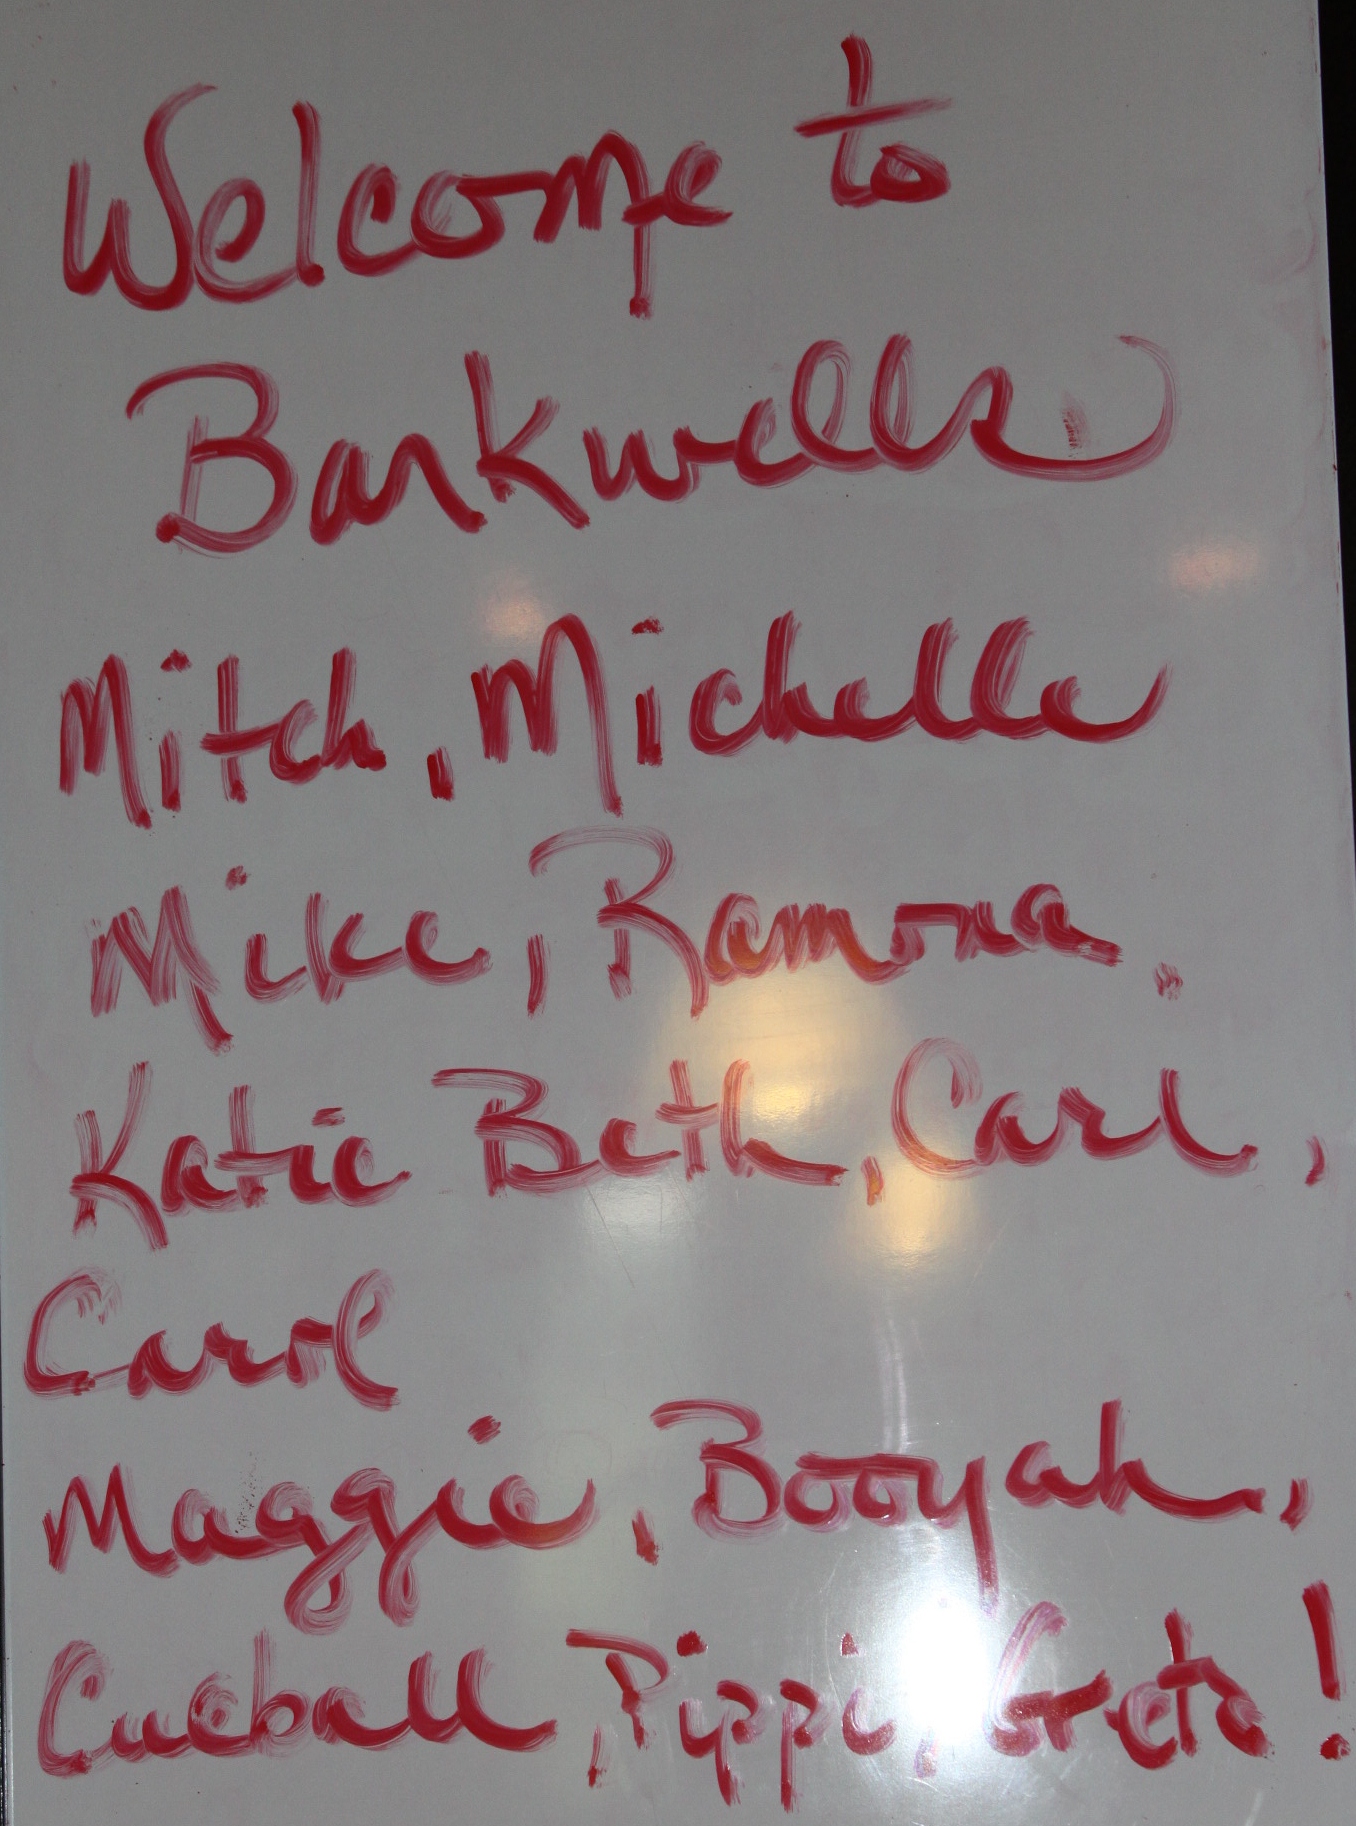 Welcome to
Barkwells
Mitch, Michelle
Mike, Ramona,
Katie Beth, Carl,
Carol
Maggie, Booyah,
Cueball, Pippi, Greta!